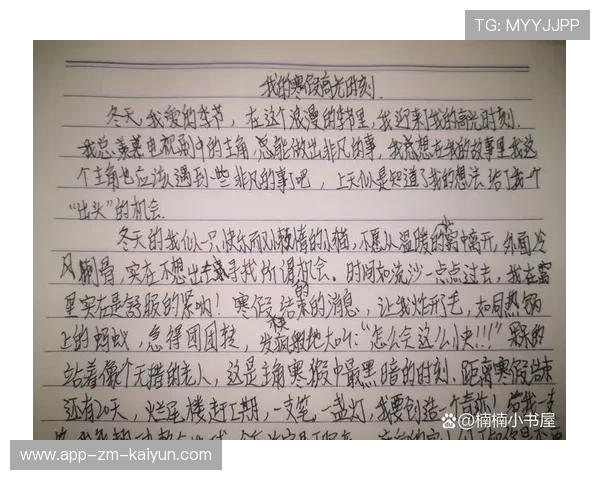 TG: MYYJJPP
我的寒假高光时刻
冬天,我爱的季节,在这个浪漫的季节里,我迎来了我的高光时刻.
我总羡慕电视剧中的主角,总能做出非凡的事,我总想在我的故事里我这
个主角也应该遇到些非凡的事了吧,上天似是知道了我的想法,给了我一个
“出头”的机会.
冬天的我似一只快乐而又慵懒的小猫,不愿从温暖的窝中离开,外面冷
风刺骨,实在不想出去寻找所谓机会。时间如流沙一点点过去,我在窝
里实在是舒服的紧哟!寒假结束的消息,让我炸开了毛,如同热锅
上的蚂蚁,急得团团转,发疯般地大叫:“怎么会这么小快!!!”呆呆的
站着像个无措的老人,这是主角寒假中最黑暗的时刻.距离寒假结束
还有20天,烂尾楼赶工期,一支笔一盏灯,我要创造一个奇迹!给我一支
Bai百度 @楠楠小书屋
www.app-zm-kaiyun.com